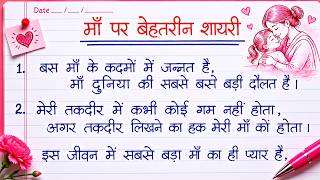 Date __/__/__
माँ पर बेहतरीन शायरी
1. बस माँ के कदमों में जन्नत है,
माँ दुनिया की सबसे बसे बड़ी दौलत है।
2. मेरी तकदीर में कभी कोई गम नहीं होता,
अगर तकदीर लिखने का हक मेरी माँ कों होता।
इस जीवन में सबसे बड़ा माँ का ही प्यार है,